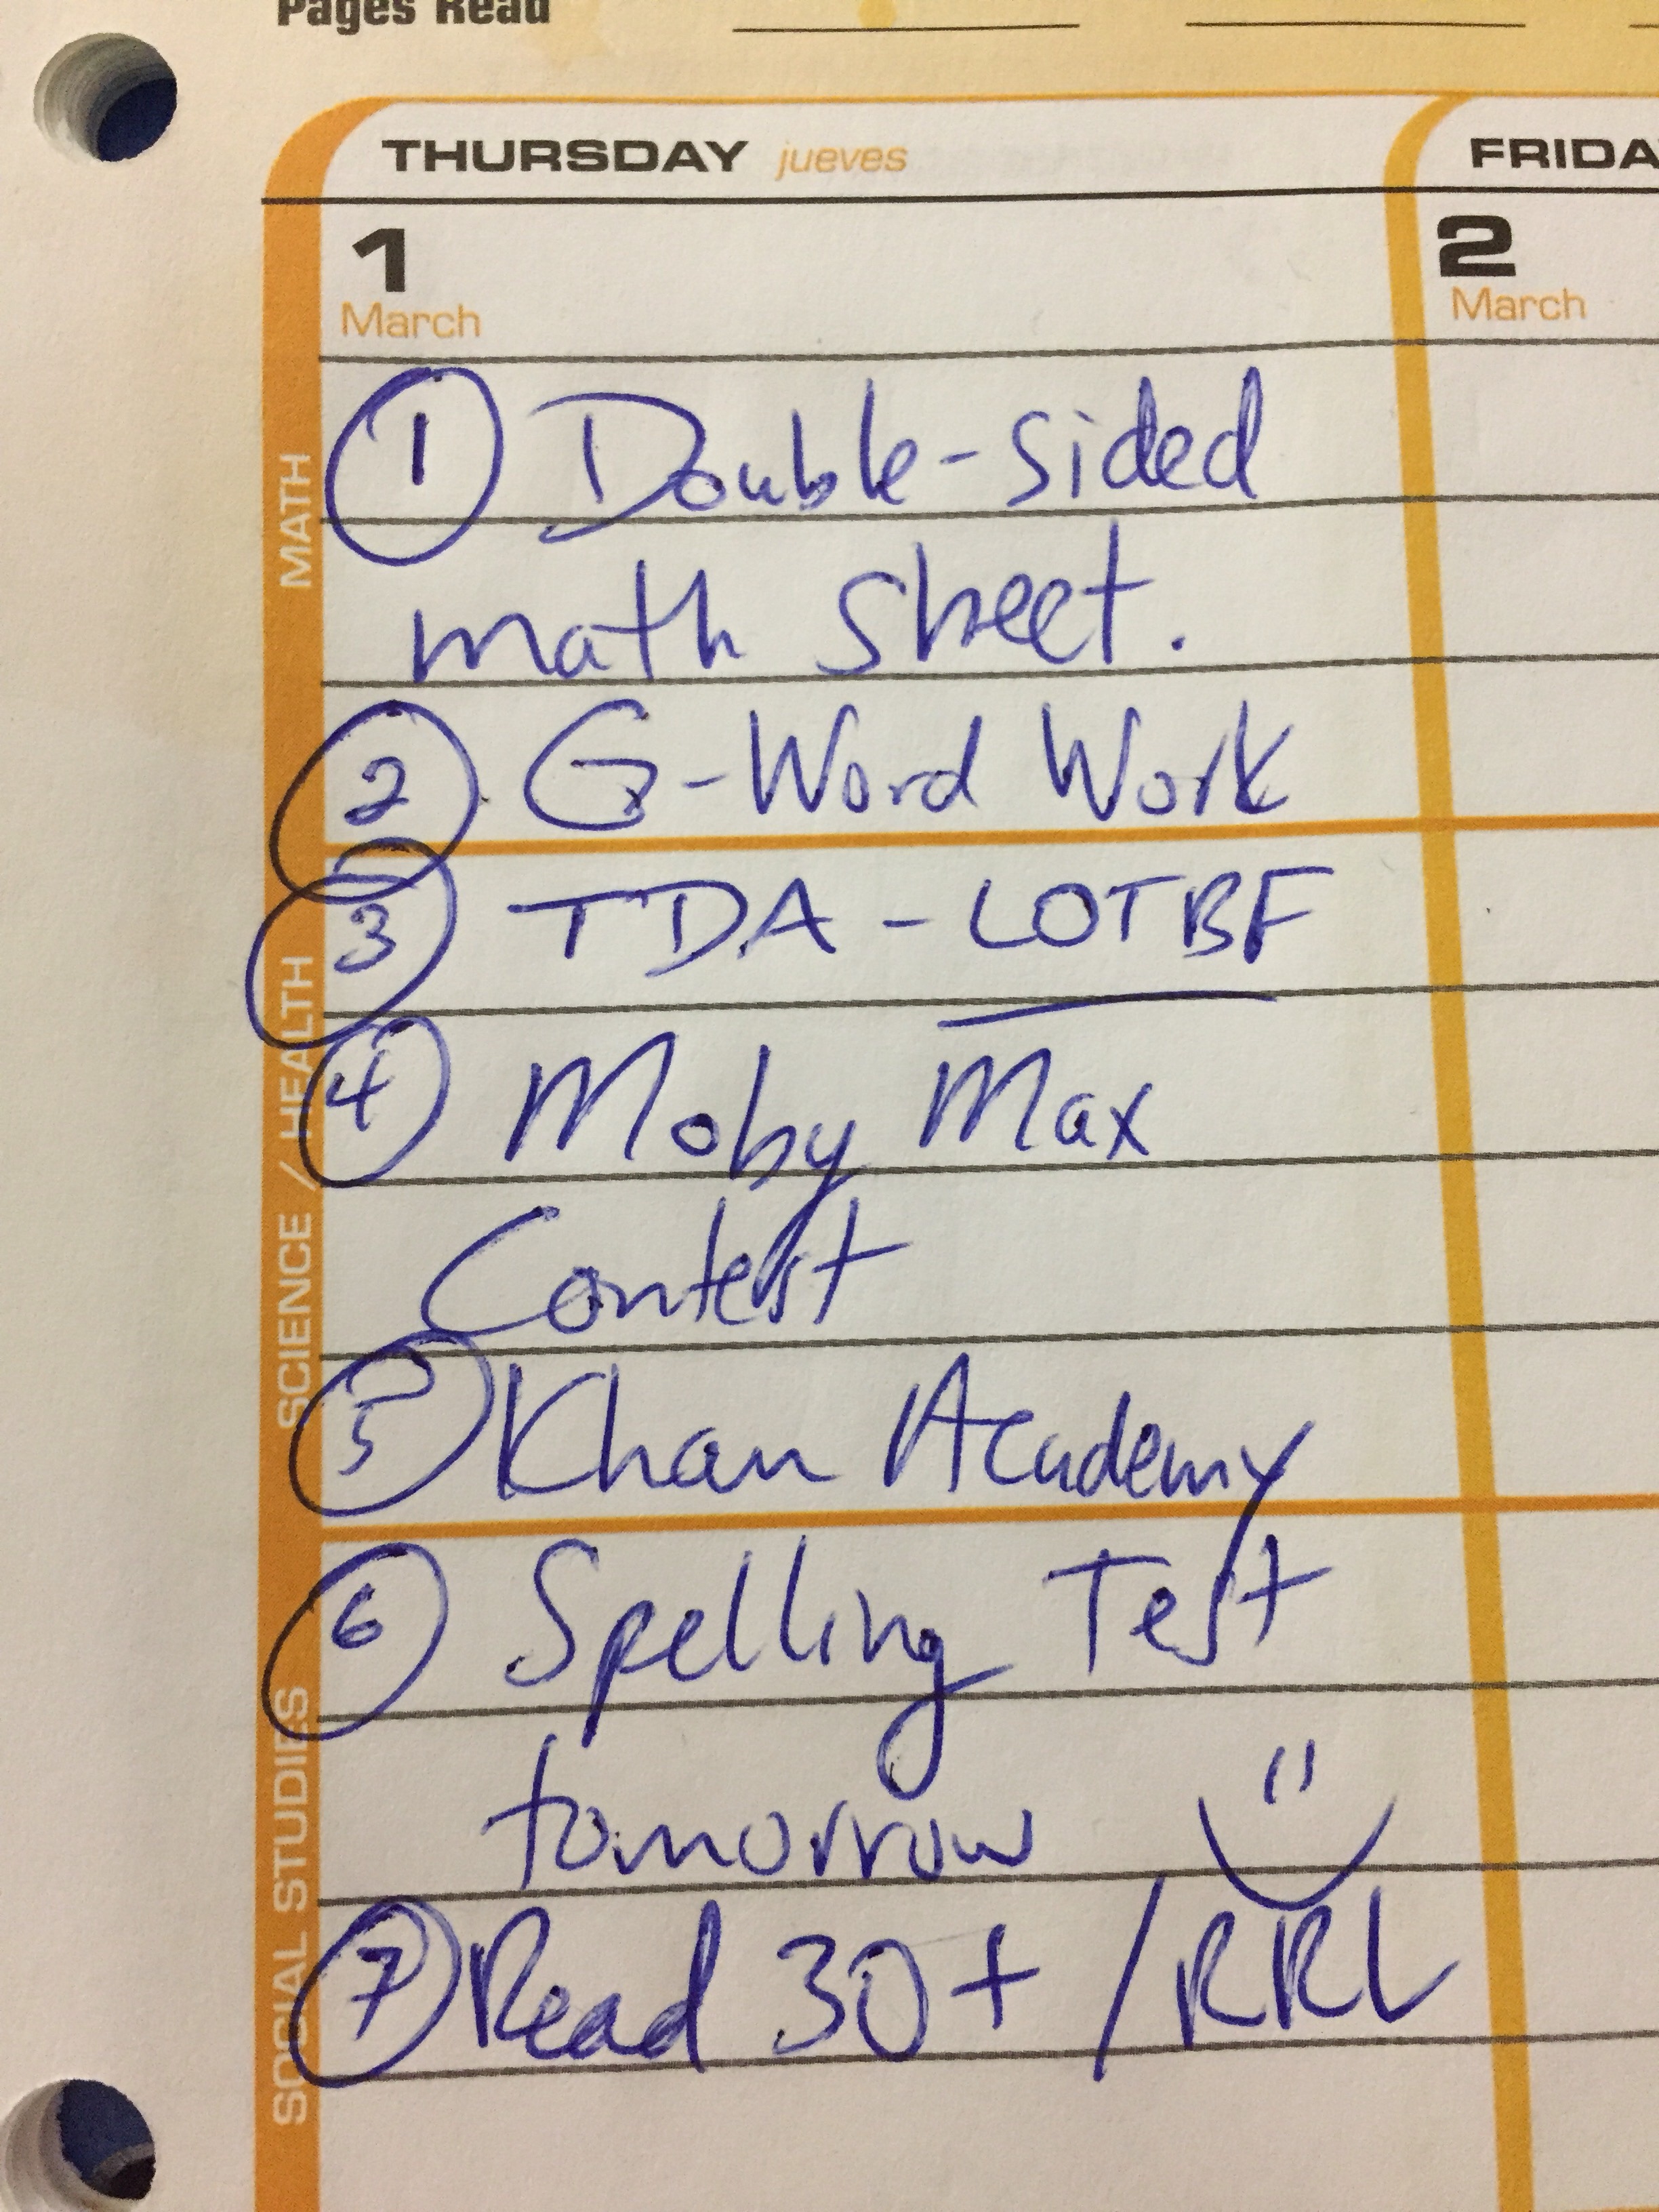 Pages Read
THURSDAY jueves
FRIDA
1
March
2
March
MATH
① Double-sided
math sheet.
② G-Word Work
SCIENCE / HEALTH
③ TDA - LOTBF
④ Moby Max
Contest
⑤ Khan Academy
SOCIAL STUDIES
⑥ Spelling Test
tomorrow
⑦ Read 30+ / RRL